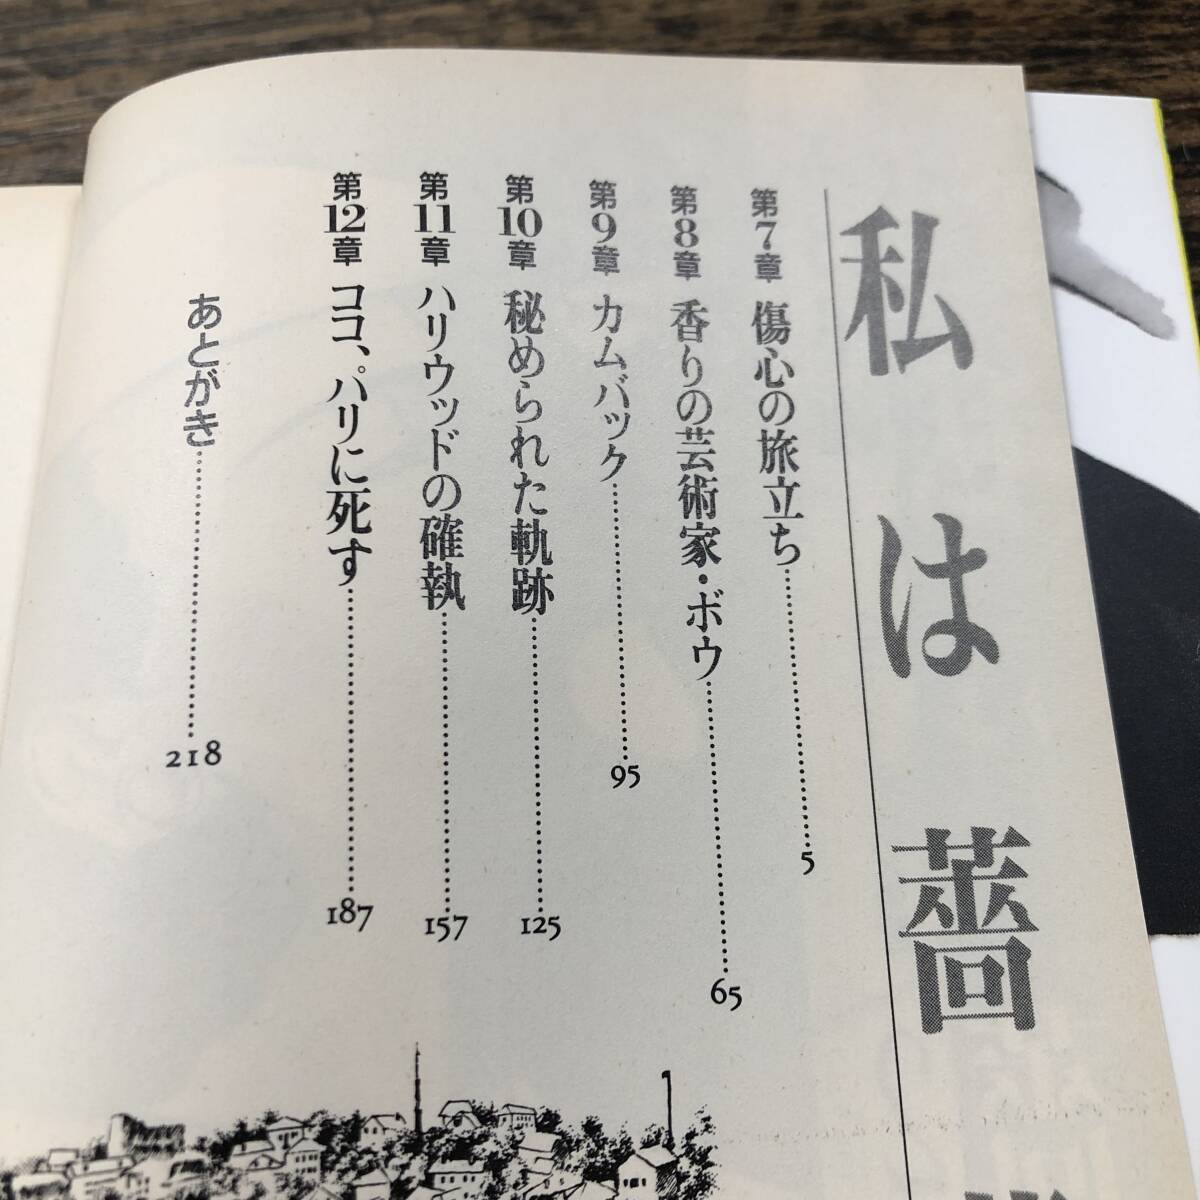 私は薔
第7章 傷心の旅立ち……5
第8章 香りの芸術家・ボウ……65
第9章 カムバック……95
第10章 秘められた軌跡……125
第11章 ハリウッドの確執……157
第12章 ココ、パリに死す……187
あとがき……218